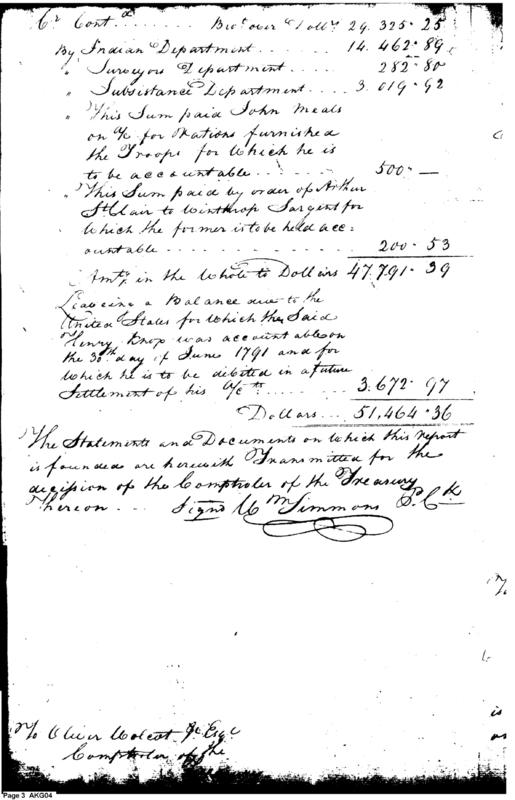 Cr Contd Brot over Dollrs 29.325.25
By Indian Department 14.462.89
" Surveyors Department 282.80
" Subsistance Department 3.019.92
" This Sum paid John Meals
on a/c for Rations furnished
the Troops for which he is
to be accountable 500. —
" This Sum paid by order of Arthur
St Clair to Winthrop Sargent for
which the former is to be held acc=
ountable 200.53
Amtg in the whole to Dollars 47.791.39
Leaveing a Balance due to the
United States for which the Said
Henry Knox was accountable on
the 30th day of June 1791 and for
which he is to be debited in a future
Settlement of his a/cts 3.672.97
Dollars 51,464.36
The Statements and Documents on which this report
is founded are herewith Transmitted for the
decission of the Comptroler of the Treasury
Thereon Signd Wm Simmons P. Ck
To Oliver Wolcott Jr Esqr
Comptroler of the
Page 3 AKG04